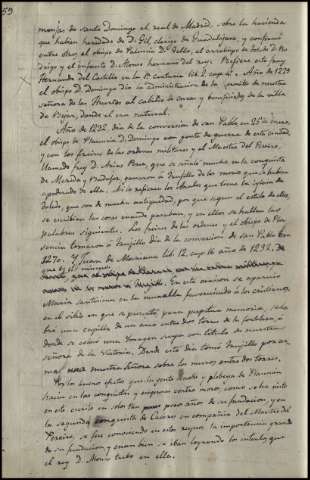 59
monjas de santo Domingo el real de Madrid, sobre la hacienda
que habian heredado de D. Gil clerigo de Guadalajara, y confirmó
entre otros el obispo de Palencia D. Tello, el arzobispo de Toledo D. Ro
drigo y el infante D. Alonso hermano del rey. Refiere esto fray
Hernando del Castillo en la 1ª centuria lib. 1, cap. Año de 1229
el obispo D. Domingo dio la administracion de la ermita de nuestra
señora de las Huertas al cabildo de curas y beneficiados de la villa
de Bejar, donde el era natural.
Año de 1232, dia de la conversion de san Pablo, en 25 de enero,
el obispo de Plasencia D. Domingo con gente de guerra de esta ciudad,
y con los freires de las ordenes militares y el Maestre del Pereiro,
llamado frey D. Arias Perez, que se señaló mucho en la conquista
de Merida y Badajoz, ganaron á Trujillo de los moros que se habian
apoderado de ella. Asi lo refieren los annales que tiene la iglesia de
Toledo, que son de mucha antigüedad, por que segun el estilo de ellos,
se escribian las cosas cuando pasaban, y en ellos se hallan las
palabras siguientes. Los freires de las ordenes y el obispo de Pla
sencia tomaron á Trujillo dia de la conversion de san Pablo era
1270. Y Juan de Mariana lib. 12, cap. 16 año de 1232, de
que el mismo
En esta ocasion se aparecio
Maria santisima en la muralla favoreciendo á los cristianos,
en el sitio en que se puso, para perpetua memoria, sobre
una capilla de un arco entre dos torres de la fortaleza, á
donde se colocó una imagen suya con titulo de nuestra
señora de la Victoria. Desde este dia tomó Trujillo por ar
mas nuestra señora sobre los muros entre dos torres.
Por los buenos efectos que la gente noble y plebeya de Plasencia
hacia en las conquistas y empresas contra moros, como se ha visto
en este cerco en tan pocos años de su fundacion, y en
la segunda conquista de Caceres en compañia del Maestre del
Pereiro, se fue conociendo en estos reynos la importancia grande
de su fundacion, y cuan bien se iban logrando los intentos que
el rey D. Alonso tubo en ella.